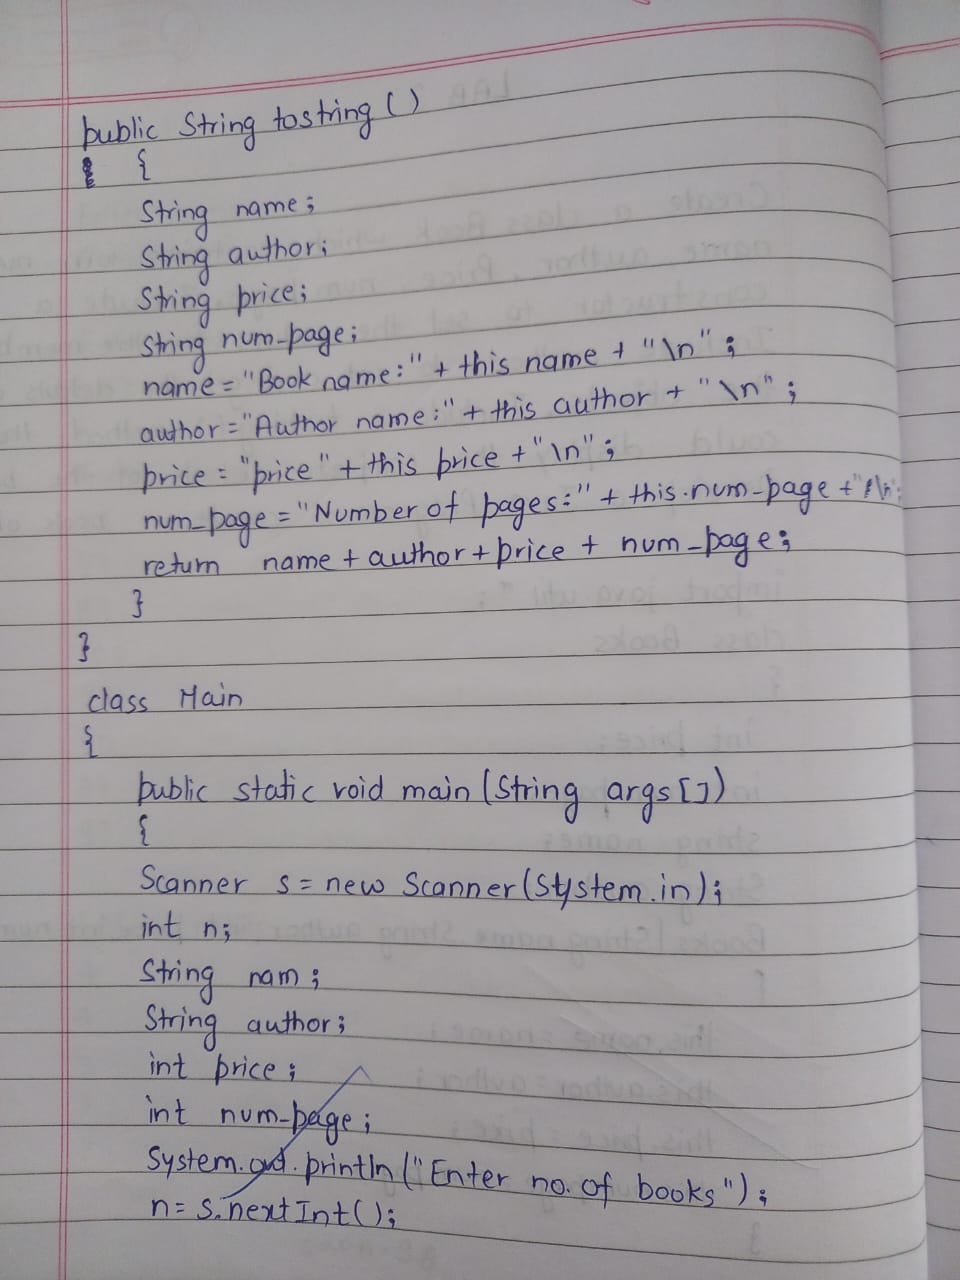 public String tostring()
{
String name;
String author;
String price;
String num_page;
name = "Book name:" + this name + "\n";
author = "Author name:" + this author + "\n";
price = "price" + this price + "\n";
num_page = "Number of pages:" + this.num_page + "\n";
return name + author + price + num_page;
}
}
class Main
{
public static void main (String args[])
{
Scanner s = new Scanner (System.in);
int n;
String nam;
String author;
int price;
int num_page;
System.out.println ("Enter no. of books");
n = s.nextInt();